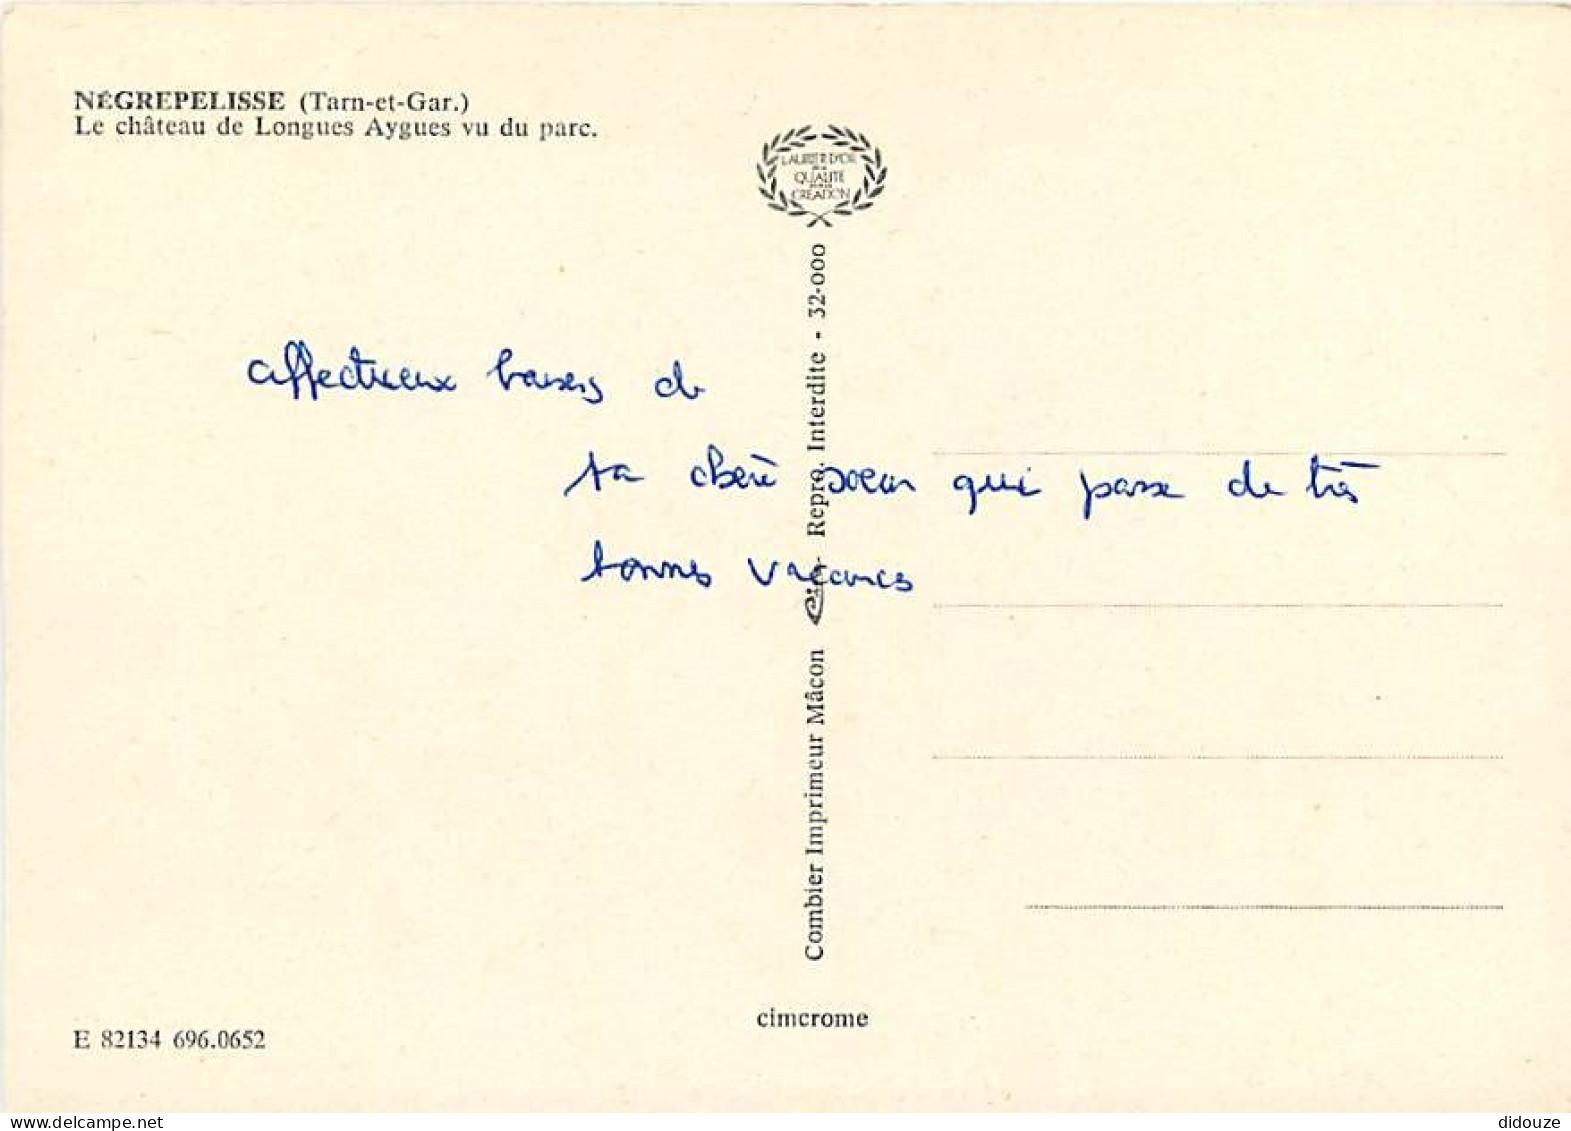 NÉGREPELISSE (Tarn-et-Gar.)
Le château de Longues Aygues vu du parc.
LAURIER D'OR
DE LA
QUALITÉ
DANS LA
CRÉATION
affectueux baisers de
ta chère soeur qui passe de très
bonnes vacances
Combier Imprimeur Mâcon Cim Repro. Interdite - 32-000
cimcrome
E 82134 696.0652
delcampe.net
didouze